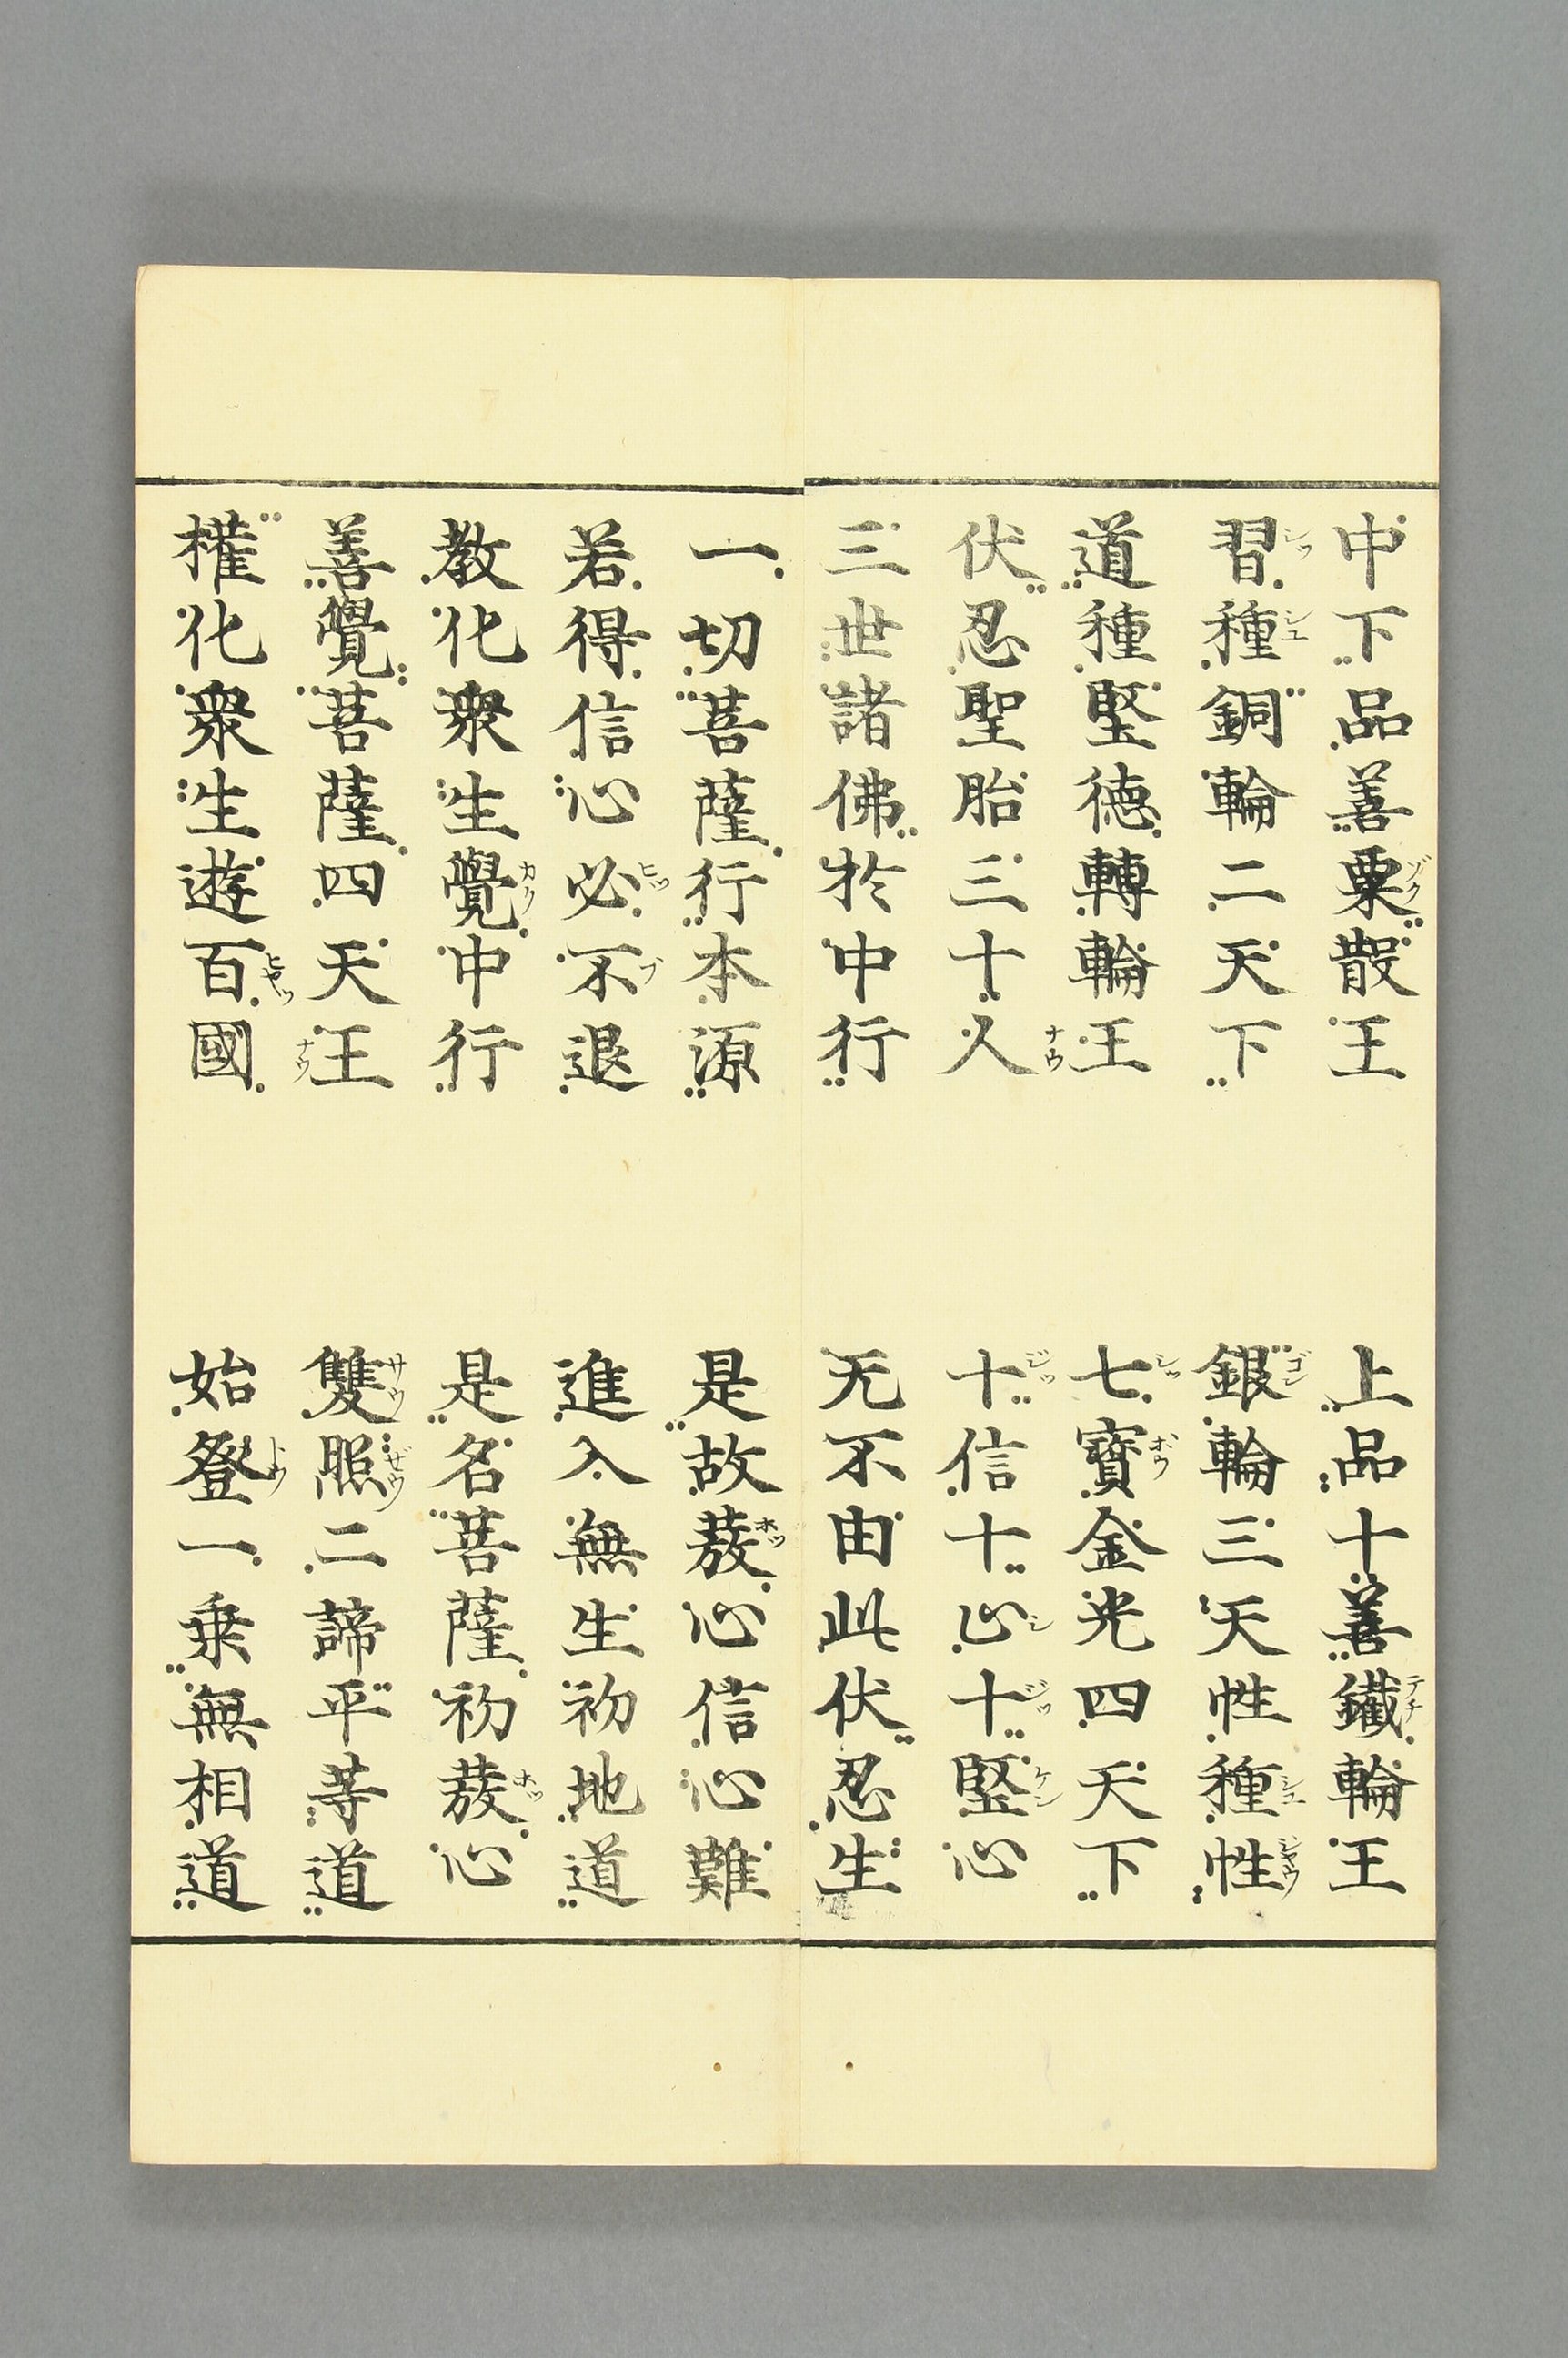 中下品善粟散王　上品十善鐵輪王
習種銅輪二天下　銀輪三天性種性
道種堅德轉輪王　七寶金光四天下
伏忍聖胎三十人　十信十止十堅心
三世諸佛於中行　无不由此伏忍生
一切菩薩行本源　是故發心信心難
若得信心必不退　進入無生初地道
教化衆生覺中行　是名菩薩初發心
善覺菩薩四天王　雙照二諦平等道
權化衆生遊百國　始登一乘無相道